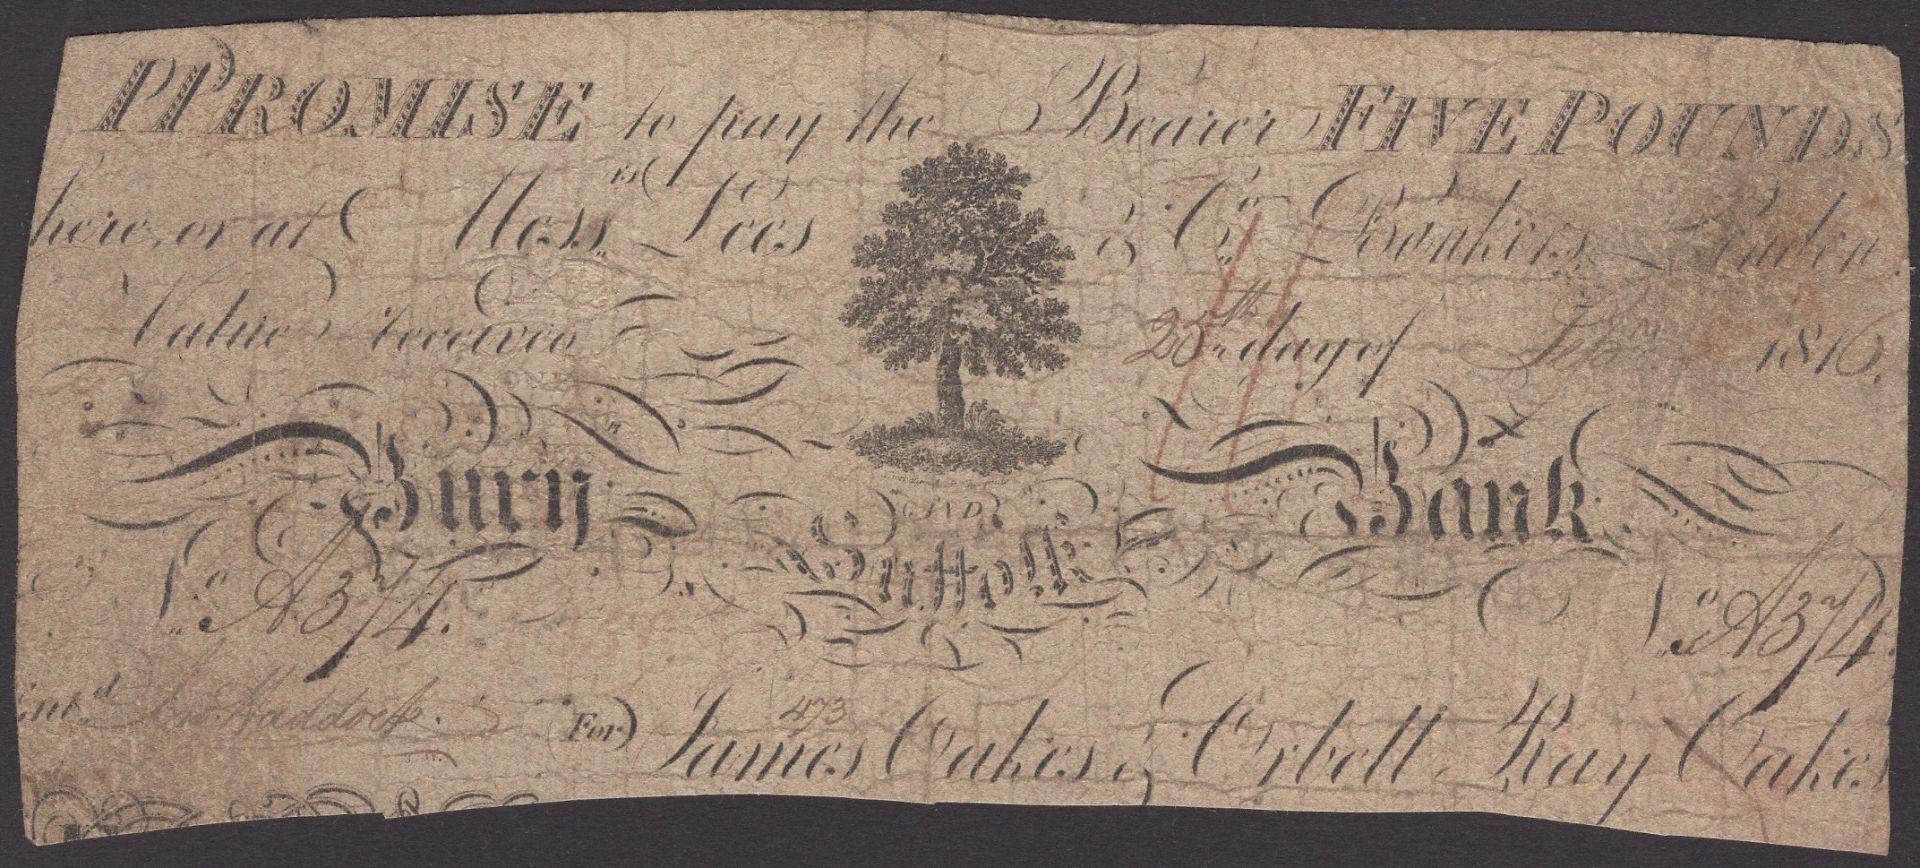 I PROMISE to pay the Bearer FIVE POUNDS
here, or at Messrs Lees & Co. Bankers, London
Value Received 28th day of Feby 1816.
Bury AND Suffolk Bank
No. A374. No. A374
Entd Jno Haddock
(For) James Oakes & Orbell Ray Oakes
473